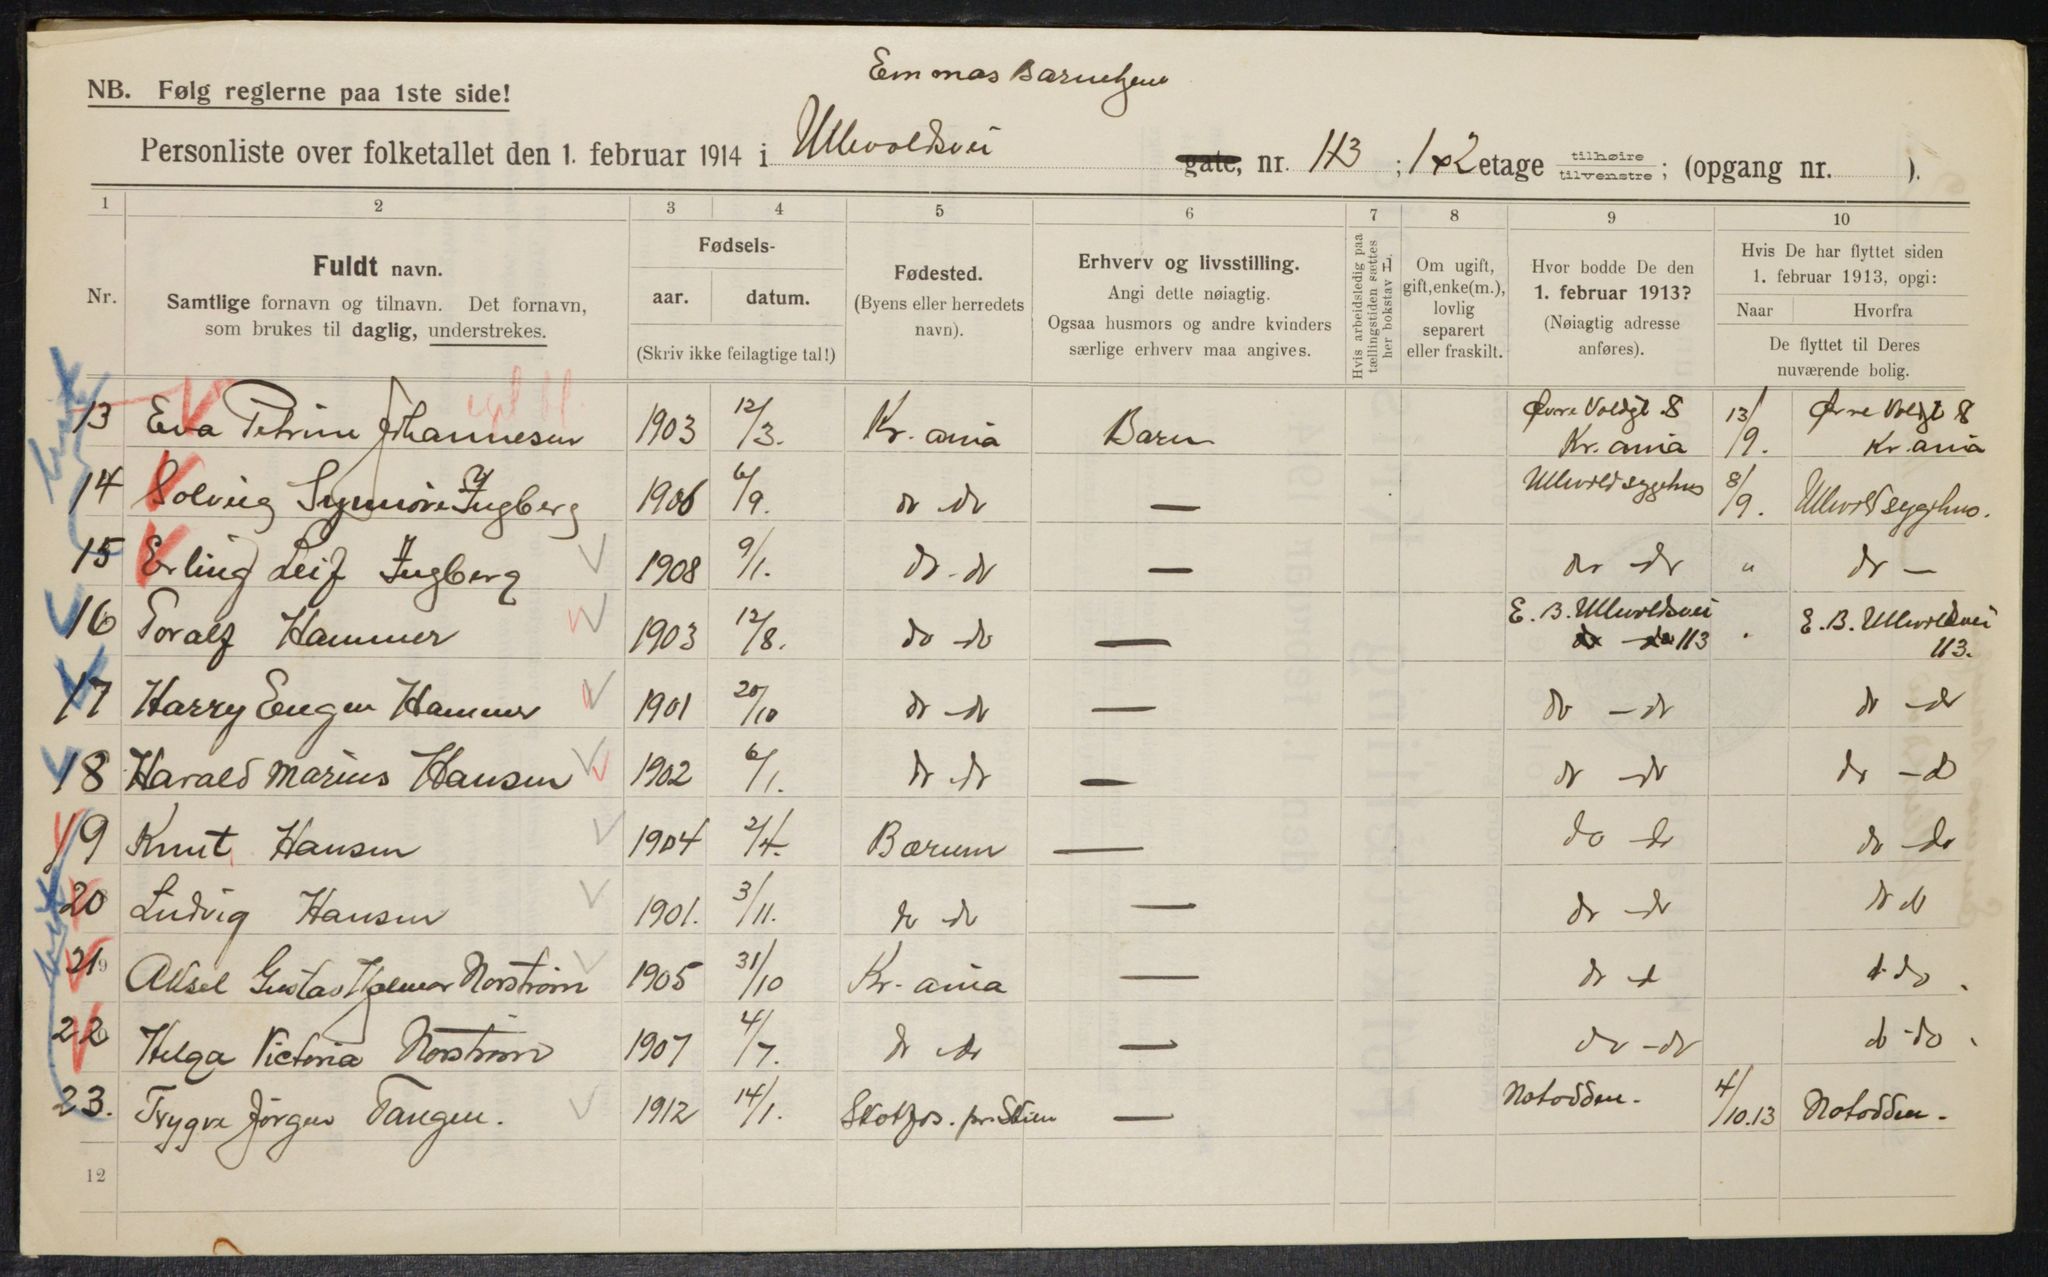 Emmas Barnehjem
NB. Følg reglerne paa 1ste side!
Personliste over folketallet den 1. februar 1914 i Ullevoldsvei gate, nr. 113 ; 1 x 2 etage tilhøire tilvenstre ; (opgang nr. ).
1 2 3 4 5 6 7 8 9 10
Nr. Fuldt navn. Samtlige fornavn og tilnavn. Det fornavn, som brukes til daglig, understrekes.
Fødsels- aar. datum. (Skriv ikke feilagtige tal!)
Fødested. (Byens eller herredets navn).
Erhverv og livsstilling. Angi dette nøiagtig. Ogsaa husmors og andre kvinders særlige erhverv maa angives.
Hvis arbeidsledig paa tællingstiden sættes her bokstav L.
Om ugift, gift, enke(m.), lovlig separert eller fraskilt.
Hvor bodde De den 1. februar 1913? (Nøiagtig adresse anføres).
Hvis De har flyttet siden 1. februar 1913, opgi: Naar Hvorfra De flyttet til Deres nuværende bolig.
13 Eva Petrine Johannesen 1903 12/3. Kr. ania Barn Øvre Voldgt 8 Kr. ania 13/9. Øvre Voldgt 8 Kr. ania
14 Solveig Synnøve Ingberg 1906 6/9. do do — Ullevold sygehus 8/9. Ullevold sygehus.
15 Erling Leif Ingberg 1908 9/1. do - do — do - do " do —
16 Toralf Hammer 1903 12/8. do - do — E. B. Ullevoldsvei do - do 113 " E. B. Ullevoldsvei 113.
17 Harry Eugen Hammer 1901 20/10 do - do — do - do do - do
18 Harald Marius Hansen 1902 6/1. do - do — do - do do - do
19 Knut Hansen 1904 2/4. Bærum — do - do do - do
20 Ludvig Hansen 1901. 3/11. do - do — do - do do do
21 Aksel Gustav Hjalmar Norstrøm 1905 31/10 Kr. ania — do - do do - do
22 Helga Victoria Norstrøm 1907 4/7. do - do — do - do do - do
23. Trygve Jørgen Tangen. 1912 14/1. Skotfos. pr. Skien — Notodden. 4/10.13 Notodden.
12